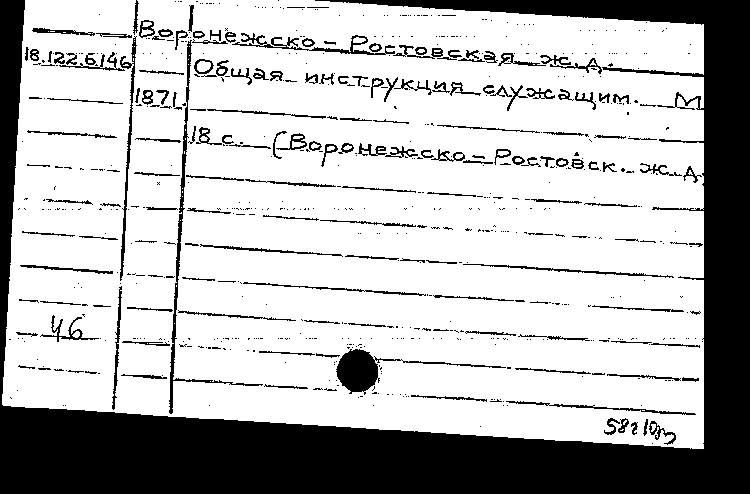 Воронежско-Ростовская ж.д.
18.122.6.146
Общая инструкция служащим. М
1871.
18 с. (Воронежско-Ростовск. ж.д.
46